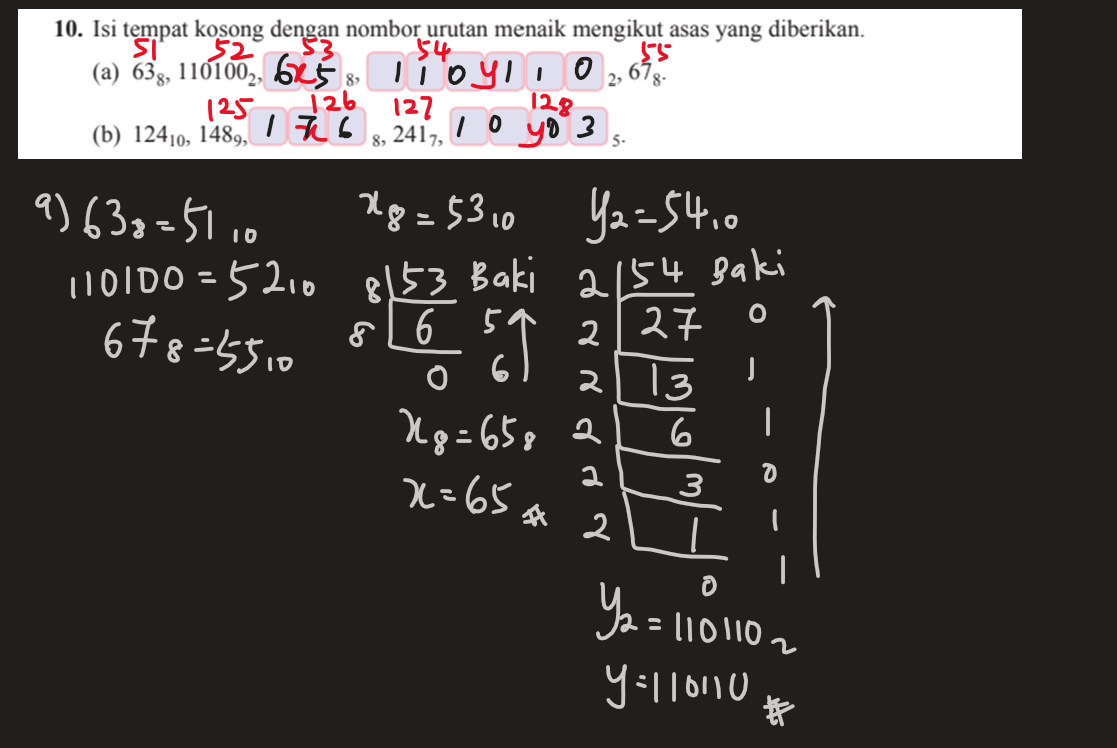 10. Isi tempat kosong dengan nombor urutan menaik mengikut asas yang diberikan.
51 52 53 54 55
(a) 63₈, 110100₂, 6x5 ₈, 110y110 ₂, 67₈.
125 126 127 128
(b) 124₁₀, 148₉, 1x76 ₈, 241₇, 10y03 ₅.
a) 63₈ = 51₁₀
110100 = 52₁₀
67₈ = 55₁₀
x₈ = 53₁₀
8 53 Baki
8 6 5
0 6
x₈ = 65₈
x = 65 #
y₂ = 54₁₀
2 54 Baki
2 27 0
2 13 1
2 6 1
2 3 0
2 1 1
0 1
y₂ = 110110₂
y = 110110 #